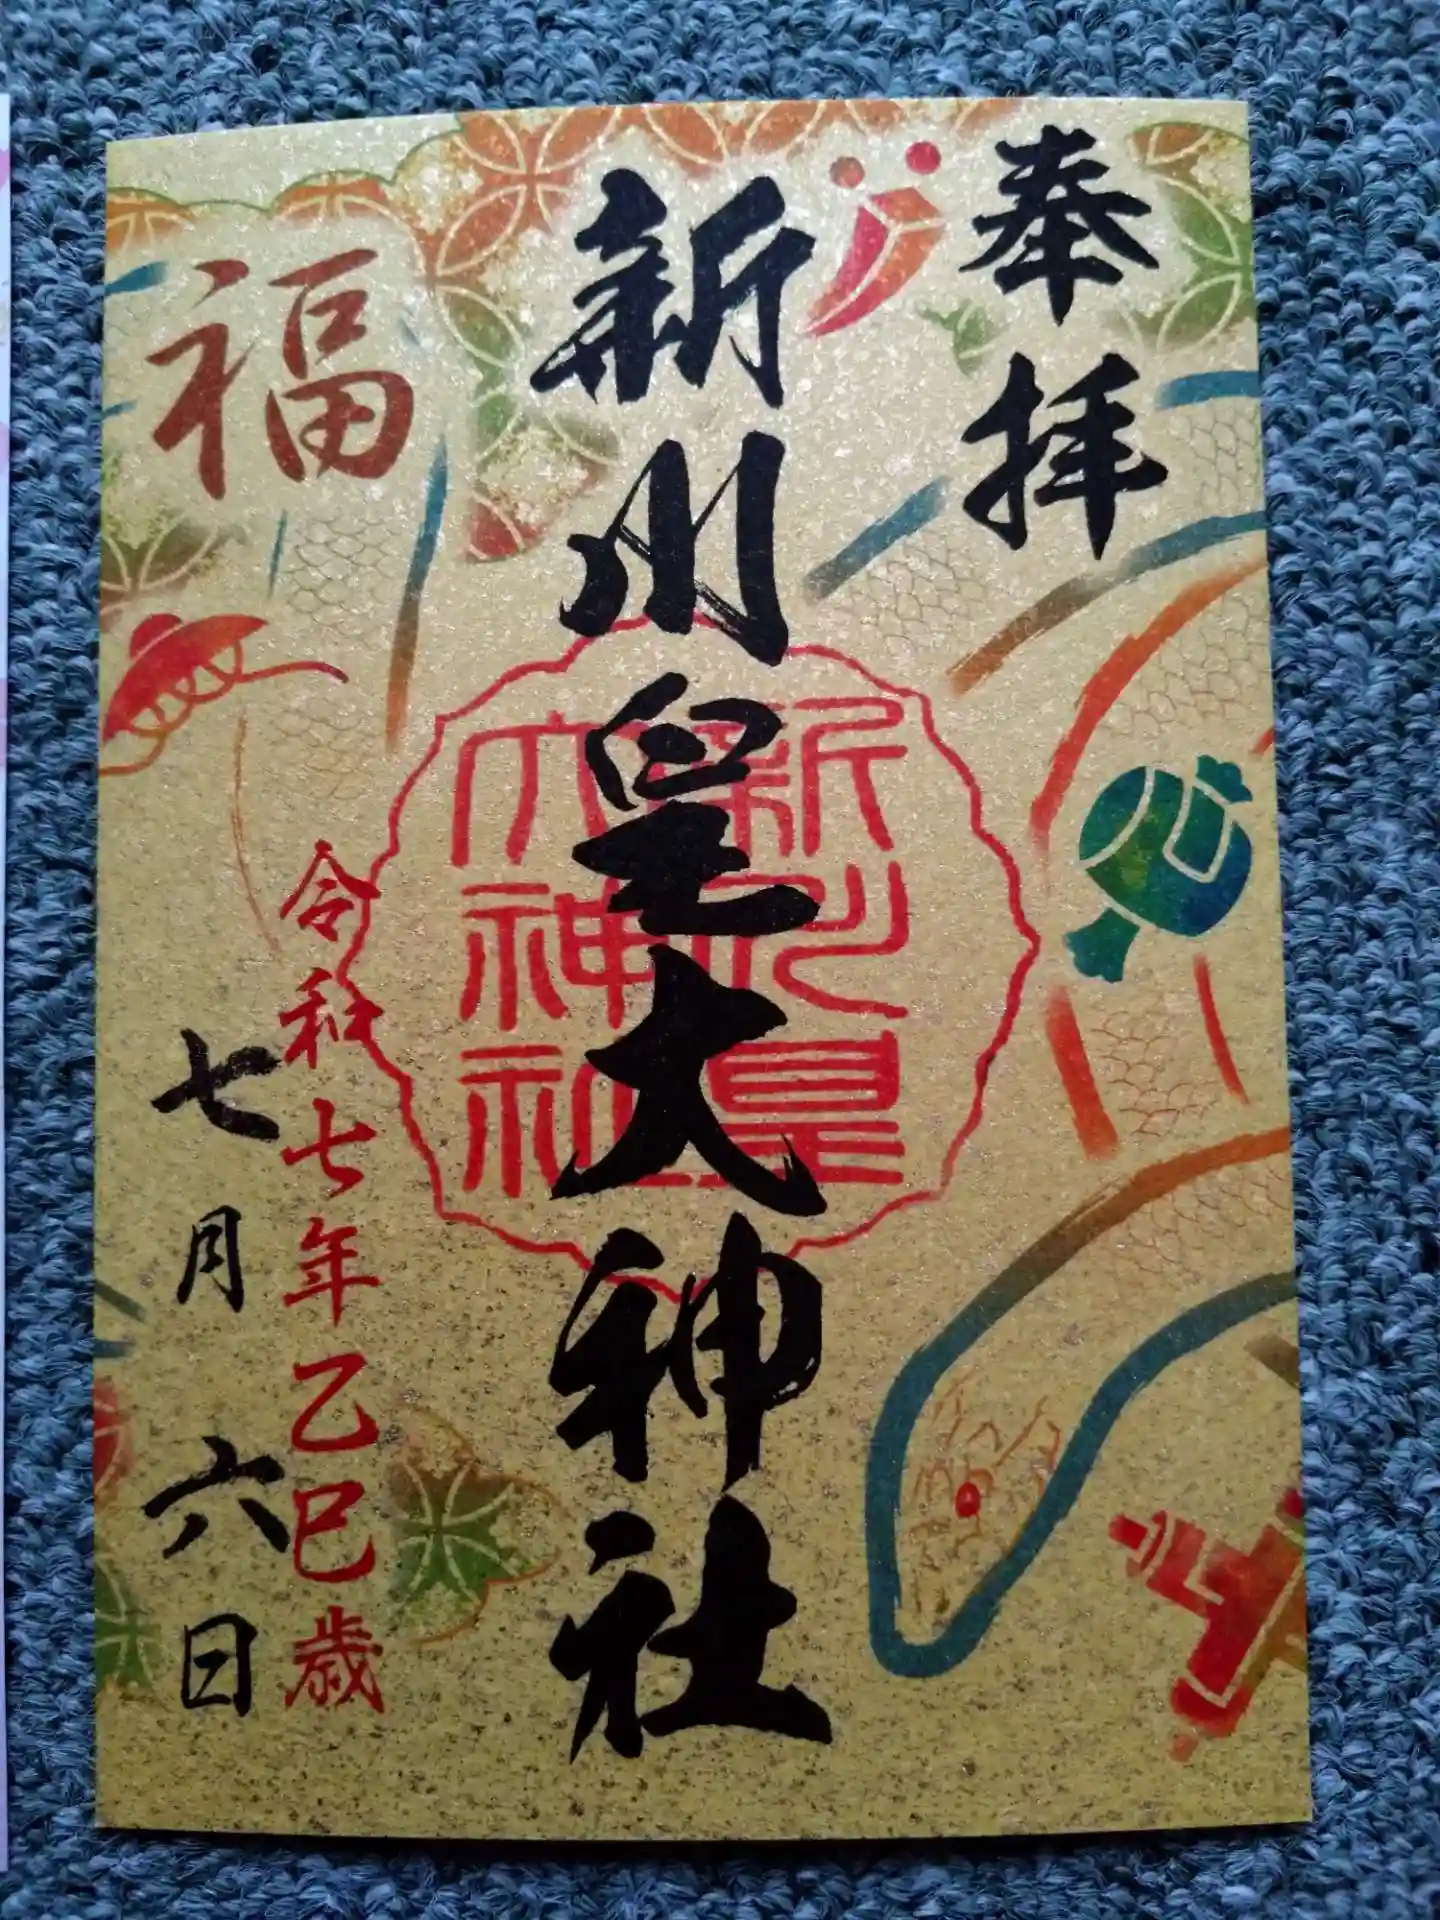 奉拝
新川皇大神社
新川皇
大神社
福
令和七年乙巳歳
七月六日